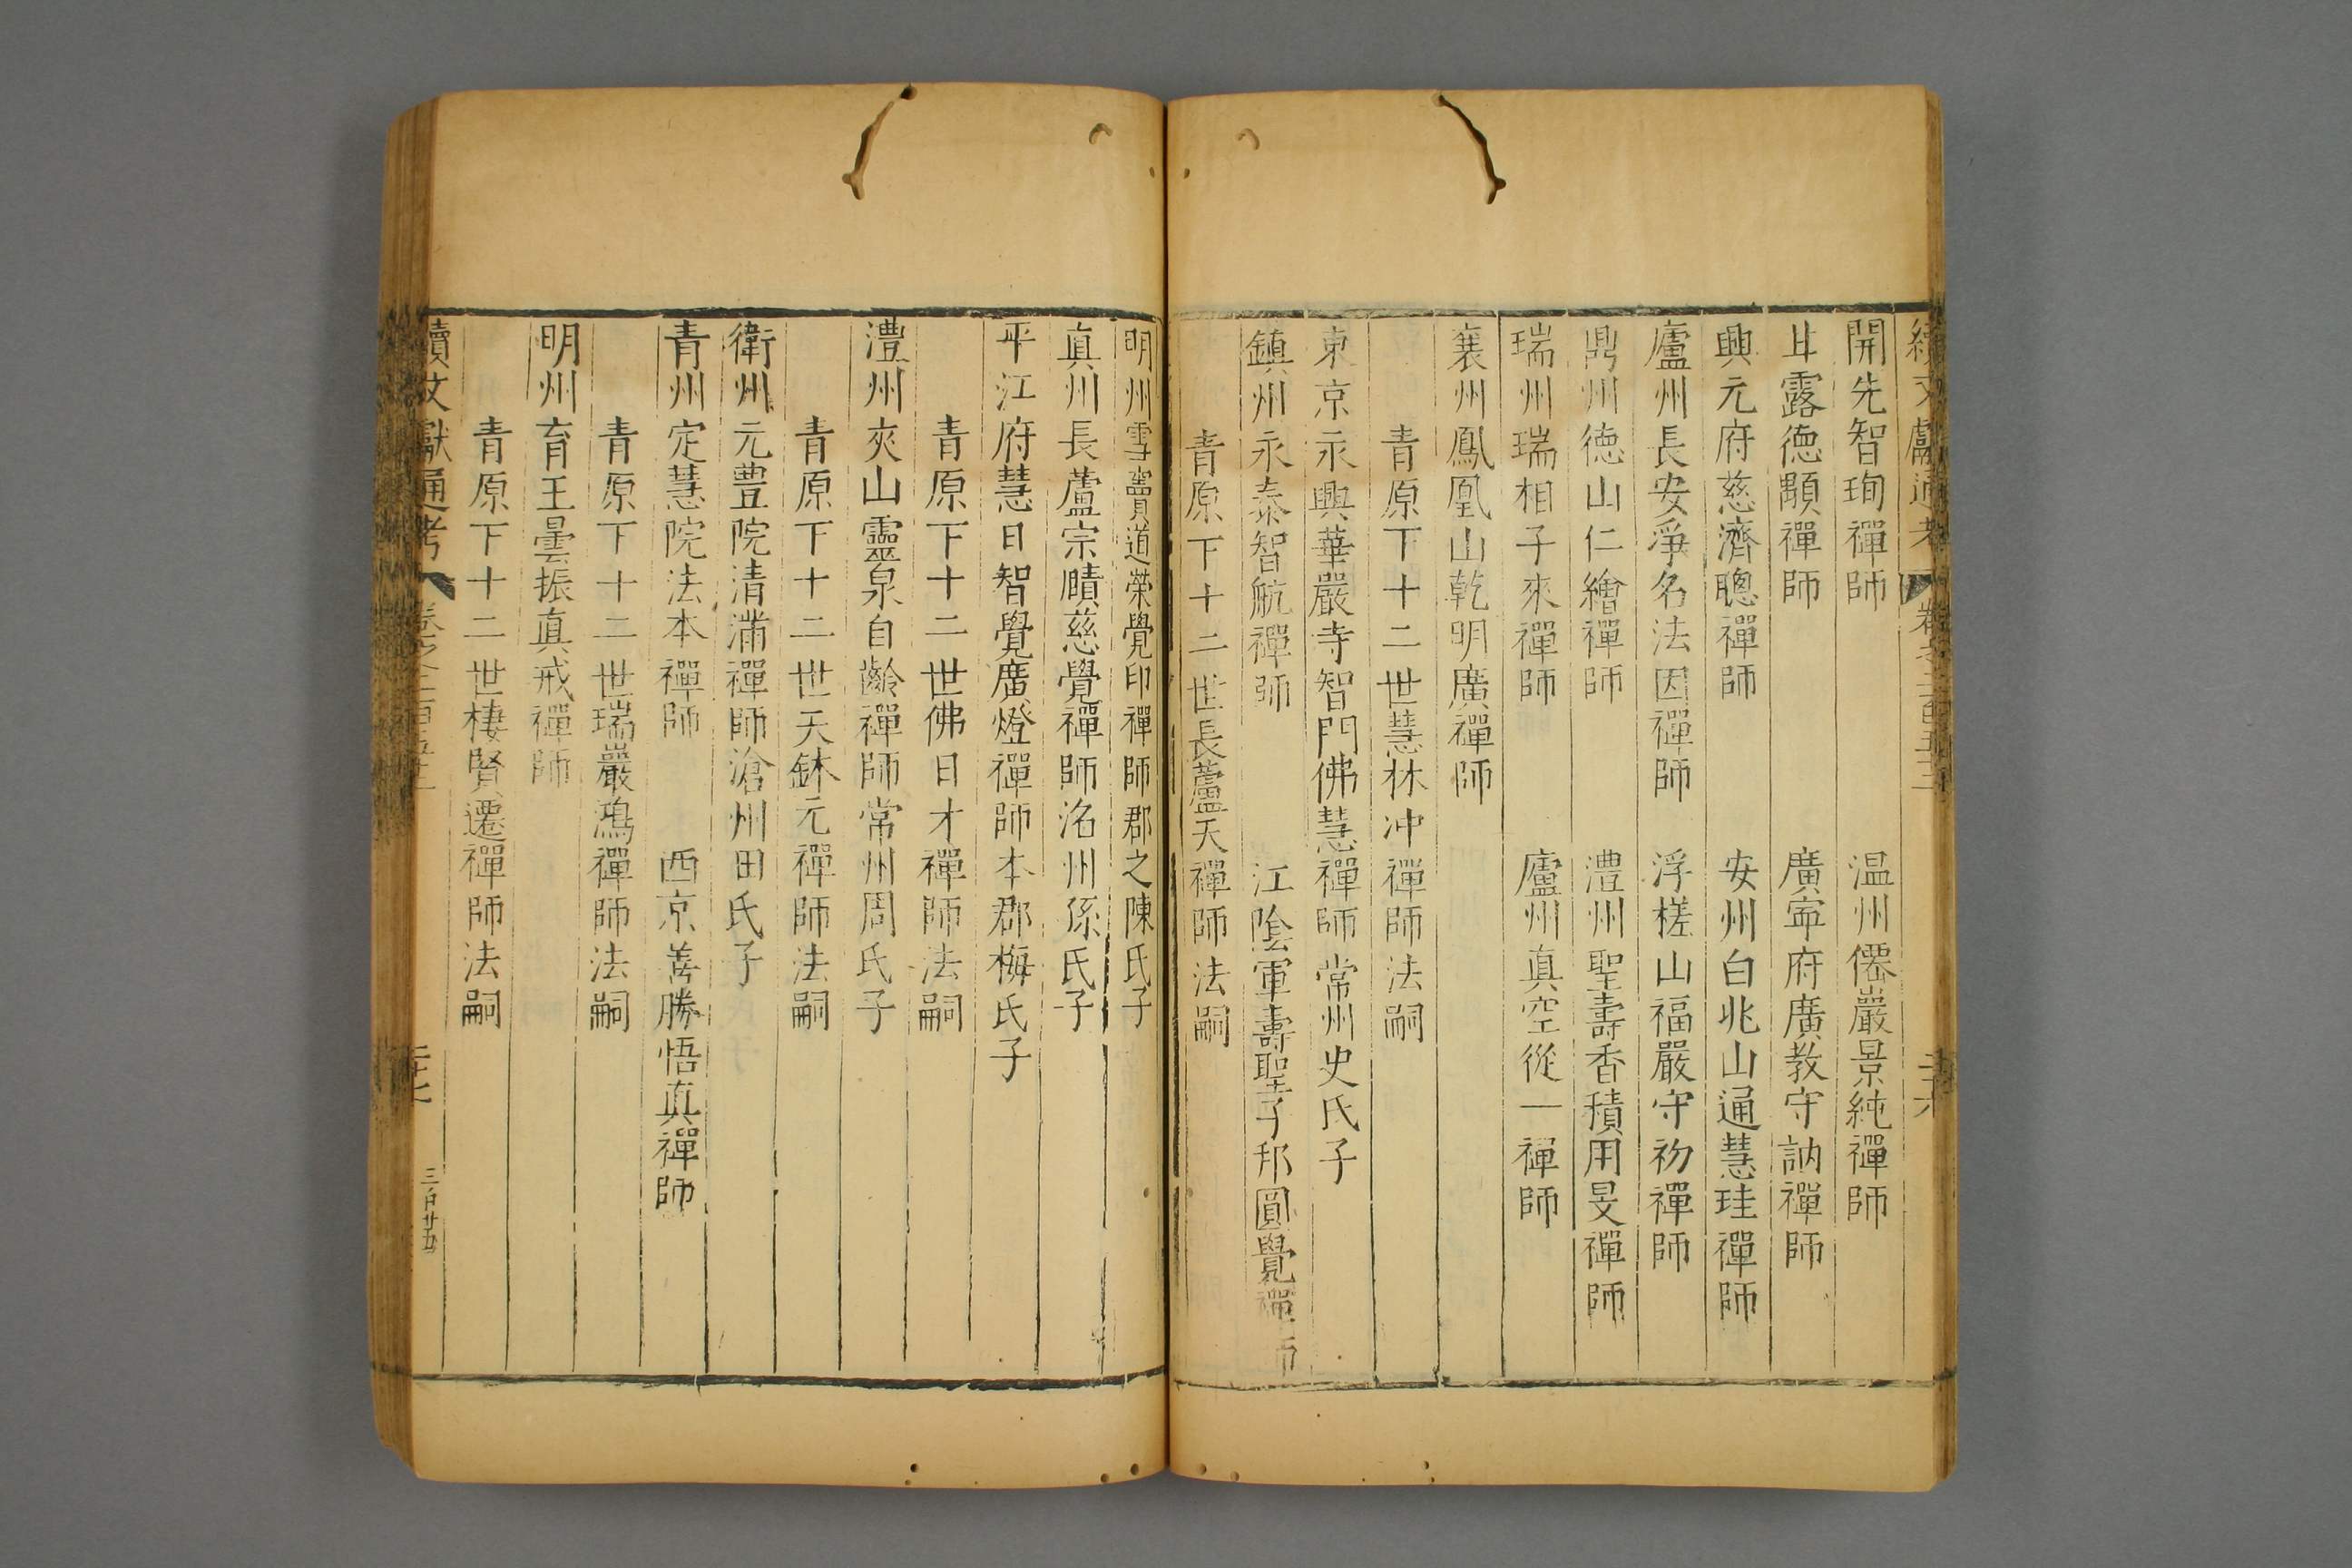 續文獻通考 卷之二百五十三 二十六
開先智珣禪師 温州僊巖景純禪師
甘露德顒禪師 廣寧府廣教守訥禪師
興元府慈濟聰禪師 安州白兆山通慧珪禪師
廬州長安淨名法因禪師 浮槎山福嚴守初禪師
鼎州德山仁繪禪師 澧州聖壽香積用旻禪師
瑞州瑞相子來禪師 廬州真空從一禪師
襄州鳳凰山乾明廣禪師
青原下十二世慧林冲禪師法嗣
東京永興華嚴寺智門佛慧禪師常州史氏子
鎮州永泰智航禪師 江陰軍壽聖子邦圓覺禪師
青原下十二世長蘆夫禪師法嗣
明州雪竇道榮覺印禪師郡之陳氏子
真州長蘆宗賾慈覺禪師洺州孫氏子
平江府慧日智覺廣燈禪師本郡梅氏子
青原下十二世佛日才禪師法嗣
澧州夾山靈泉自齡禪師常州周氏子
青原下十二世天鉢元禪師法嗣
衛州元豊院清滿禪師滄州田氏子
青州定慧院法本禪師 西京善勝悟真禪師
青原下十二世瑞巖鴻禪師法嗣
明州育王曇振真戒禪師
青原下十二世棲賢遷禪師法嗣
續文獻通考 二十七 三百廿五